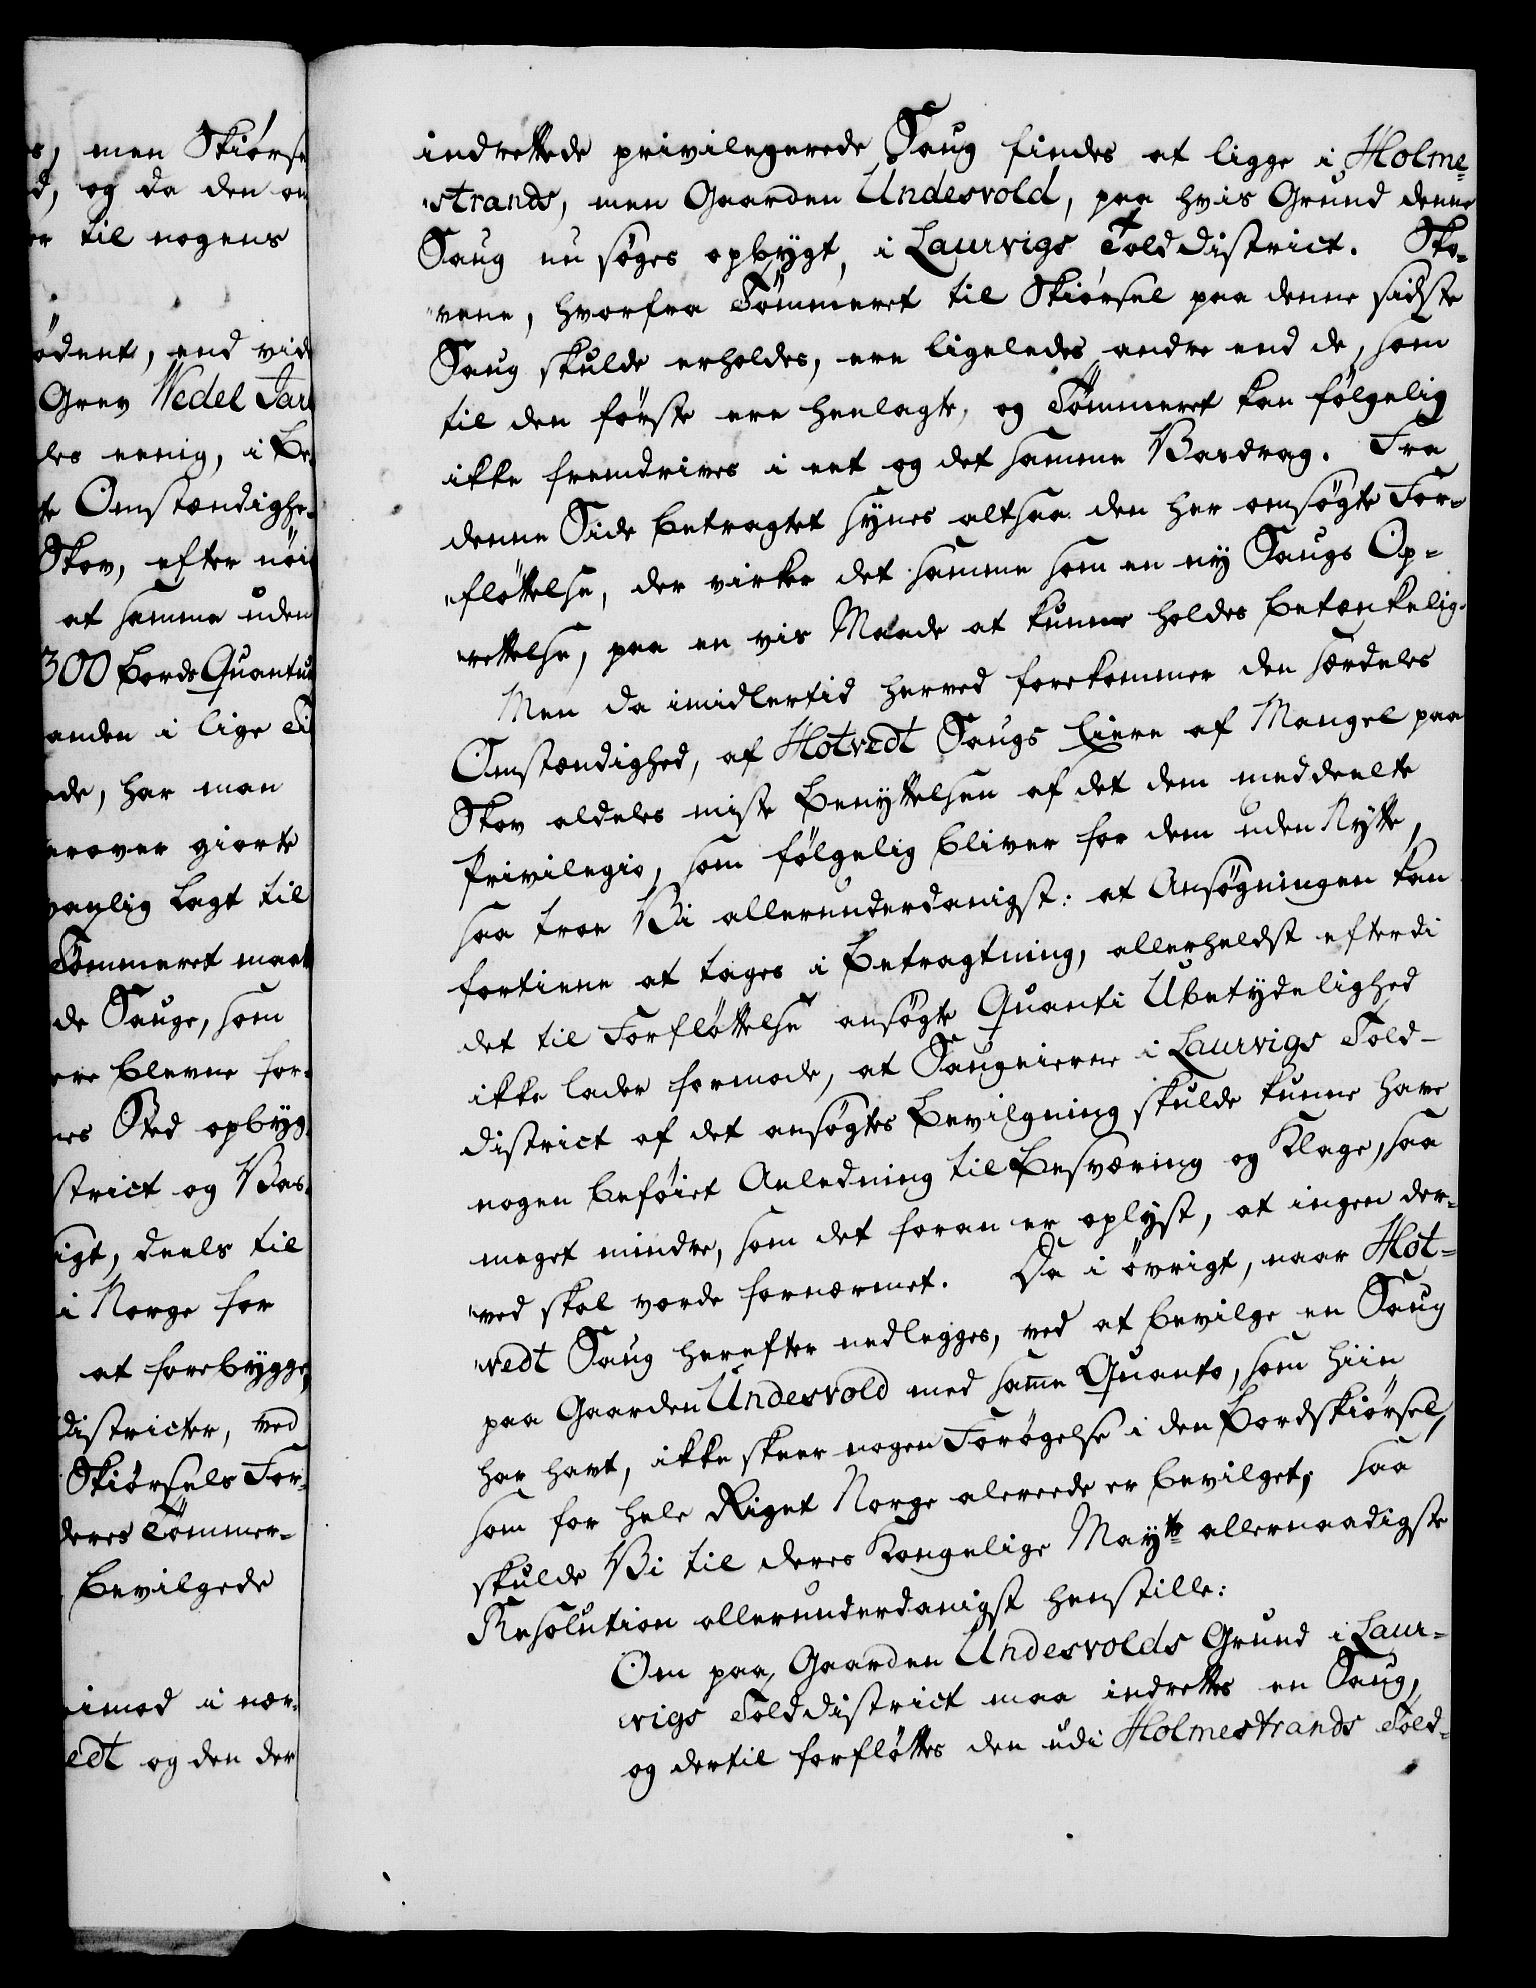 s, men Skiørse
d, og da den om
er til nogens
ødent, end vide
Grev Wedel Jar
les eenig, i Be
te Omstændighe-
Skov, efter nöi
at samme uden
300 Bords Quantu
anden i lige Ti
ede, har man
erover giorte
vanlig lagt til
Tømmeret maat
de Sauge, som
ere blevne for-
nes Sted opbyg-
strict og Vas-
igt, deels til
i Norge for
at forebygge,
districter, ved
Skiørsels For-
deres Tømmer-
bevilgede
imod i nær-
edt og den der
indrettede privilegerede Saug findes at ligge i Holme-
strands, men Gaarden Undesvold, paa hvis Grund denne
Saug nu søges opbygt, i Laurvigs Told District. Sko-
vene, hvorfra Tömmeret til Skiørsel paa denne sidste
Saug skulde erholdes, ere ligeledes andre end de, som
til den første ere henlagte, og Tömmeret kan følgelig
ikke fremdrives i eet og det samme Vasdrag. Fra
denne Side betragtet synes altsaa den her ansøgte For-
fløttelse, der virker det samme som en ny Saugs Op-
rettelse, paa en vis Maade at kunne holdes betænkelig.
Men da imidlertid herved forekommer den særdeles
Omstændighed, at Hotvedt Saugs Eiere af Mangel paa
Skov aldeles miste Benyttelsen af det dem meddeelte
Privilegio, som følgelig bliver for dem uden Nytte,
saa troe Vi allerunderdanigst: at Ansøgningen kan
fortiene at tages i Betragtning, allerheldst efterdi
det til Forfløttelse ansøgte Quanti Ubetydelighed
ikke lader formode, at Saugeierne i Laurvigs Told-
district af det ansøgtes Bevilgning skulde kunne have
nogen beføiet Anledning til Besværing og Klage, saa
meget mindre, som det foran er oplyst, at ingen der-
ved skal vorde fornærmet. Da i övrigt, naar Hot-
vedt Saug herefter nedlegges, ved at bevilge en Saug
paa Gaarden Undesvold med samme Quanto, som hiin
har havt, ikke skeer nogen Forøgelse i den Bordskiørsel,
som for hele Riget Norge alereede er bevilget; saa
skulde Vi til Deres Kongelige Mayts allernaadigste
Resolution allerunderdanigst henstille:
Om paa Gaarden Undesvolds Grund i Laur-
vigs Tolddistrict maa indrettes en Saug,
og dertil forfløttes den udi Holmestrands Told-